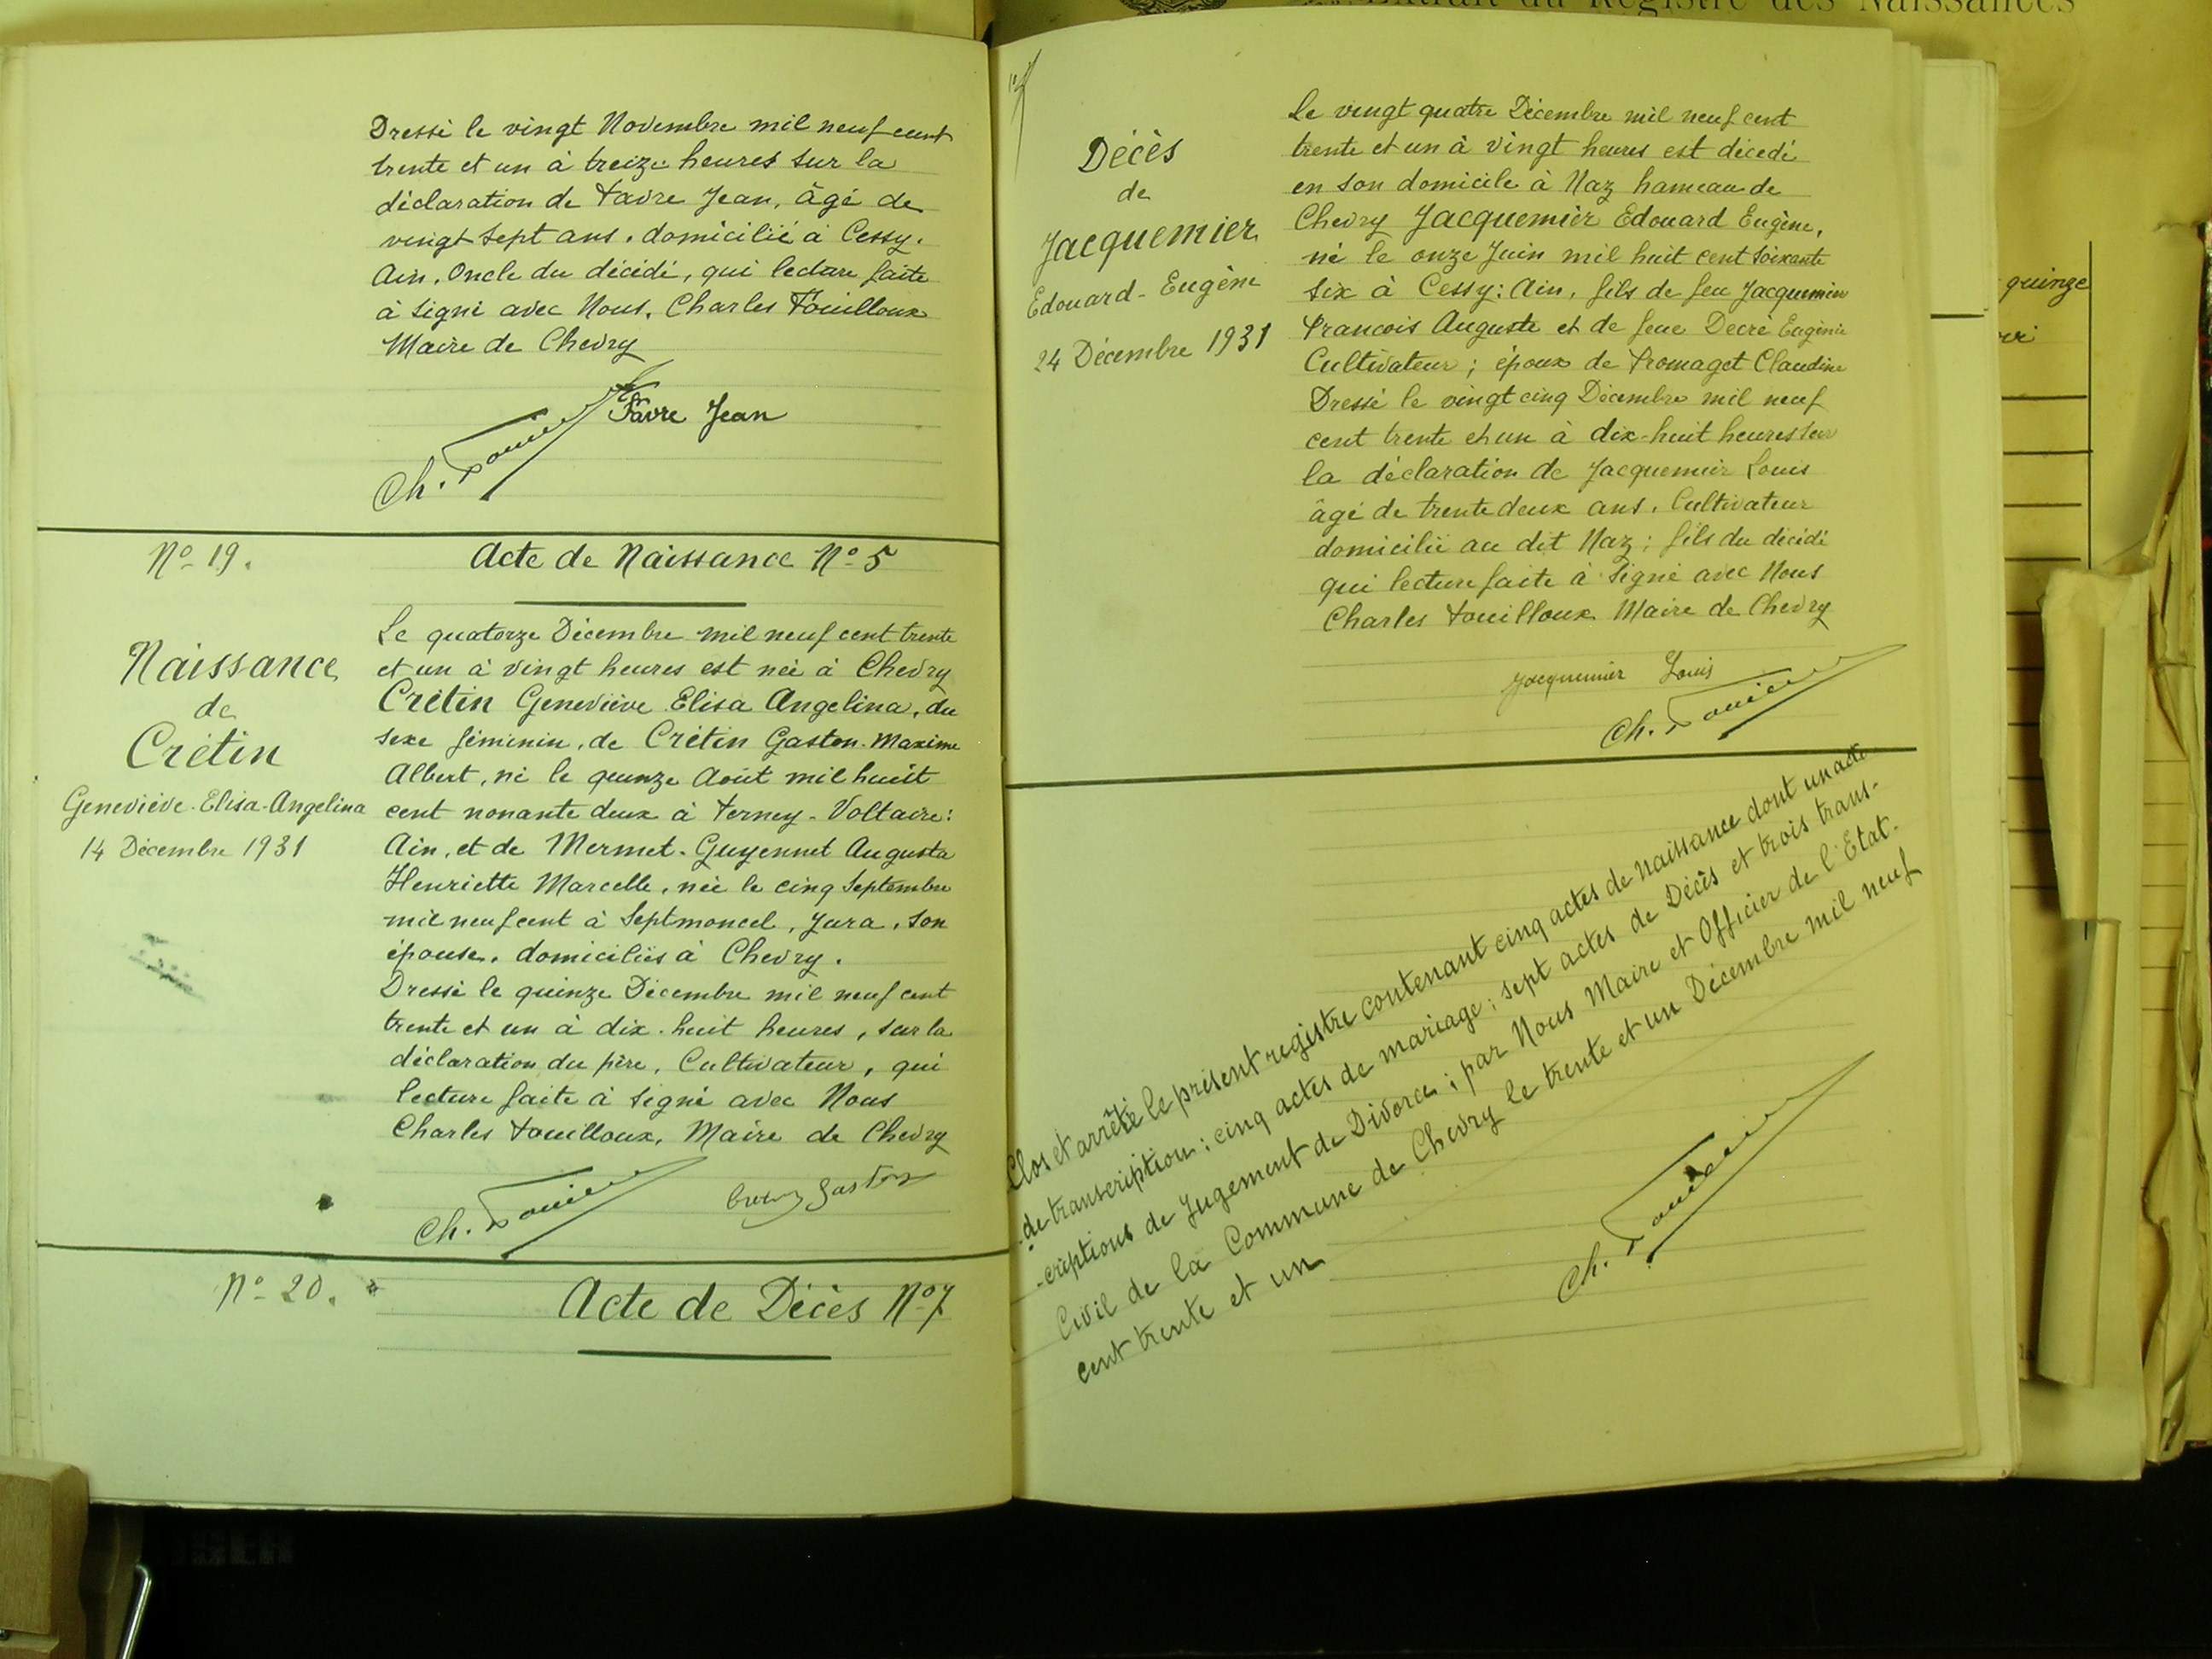 Dressé le vingt Novembre mil neuf cent
trente et un à treize heures sur la
déclaration de Favre Jean, âgé de
vingt sept ans, domicilié à Cessy.
Ain. Oncle du décédé, qui lecture faite
à signé avec Nous, Charles Fouilloux
Maire de Chevry
Favre Jean
Ch. Fouilloux
No 19.
Acte de Naissance No 5
Naissance
de
Crétin
Geneviève-Elisa-Angelina
14 Décembre 1931
Le quatorze Décembre mil neuf cent trente
et un à vingt heures est née à Chevry
Crétin Geneviève Elisa Angelina, du
sexe féminin, de Crétin Gaston-Maxime
Albert, né le quinze Août mil huit
cent nonante deux à Ferney-Voltaire:
Ain, et de Mermet-Guyennet Augusta
Henriette Marcelle, née le cinq Septembre
mil neuf cent à Septmoncel, Jura, son
épouse, domiciliés à Chevry.
Dressé le quinze Décembre mil neuf cent
trente et un à dix-huit heures, sur la
déclaration du père, Cultivateur, qui
lecture faite à signé avec Nous
Charles Fouilloux, Maire de Chevry
Ch. Fouilloux
Crétin Gaston
No 20.
Acte de Décès No 7
Décès
de
Jacquemier
Edouard-Eugène
24 Décembre 1931
Le vingt quatre Décembre mil neuf cent
trente et un à vingt heures est décédé
en son domicile à Naz hameau de
Chevry Jacquemier Edouard Eugène,
né le onze Juin mil huit cent soixante
six à Cessy: Ain, fils de feu Jacquemier
Francois Auguste et de feue Decré Eugénie
Cultivateur; époux de Fromaget Claudine
Dressé le vingt cinq Décembre mil neuf
cent trente et un à dix-huit heures sur
la déclaration de Jacquemier Louis
âgé de trente deux ans, Cultivateur
domicilié au dit Naz; fils du décédé
qui lecture faite à signé avec Nous
Charles Fouilloux Maire de Chevry
Jacquemier Louis
Ch. Fouilloux
Clos et arrêté le présent registre contenant cinq actes de naissance dont un acte
de transcription; cinq actes de mariage; sept actes de Décès et trois trans-
-criptions de Jugement de Divorce; par Nous Maire et Officier de l'Etat-
Civil de la Commune de Chevry le trente et un Décembre mil neuf
cent trente et un
Ch. Fouilloux
quinze